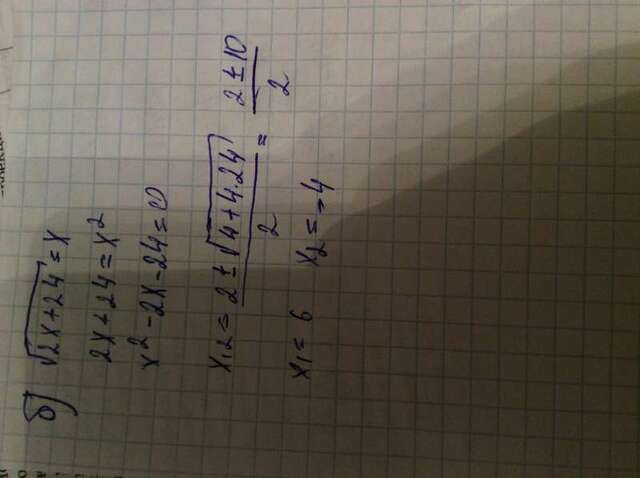 б) √(2x+24) = x
2x+24 = x²
x² - 2x - 24 = 0
x₁,₂ = (2 ± √(4+4·24))/2 = (2 ± 10)/2
x₁ = 6 x₂ = -4